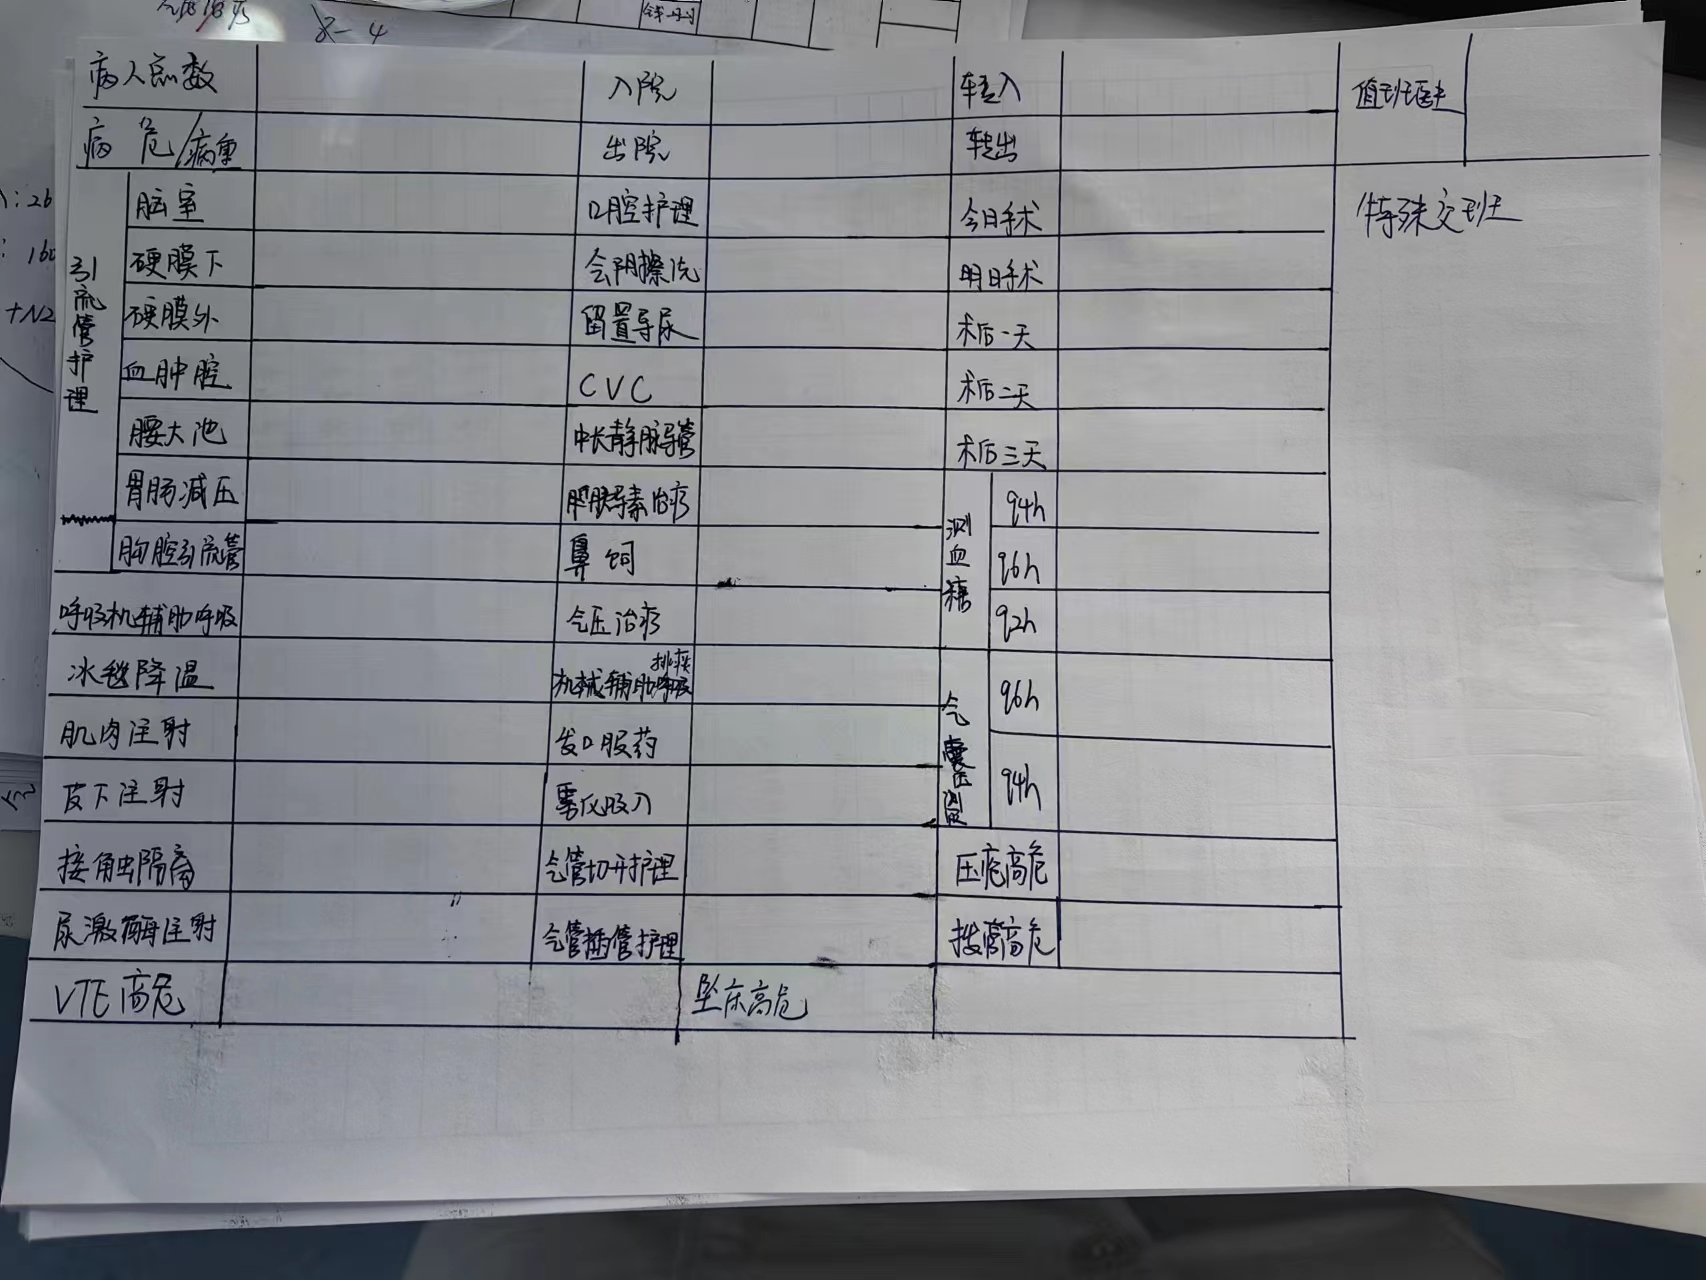 8-4
病人总数 入院 转入 值班医生
病危/病重 出院 转出
引流管护理
脑室 口腔护理 今日手术 特殊交班
硬膜下 会阴擦洗 明日手术
硬膜外 留置导尿 术后一天
血肿腔 CVC 术后二天
腰大池 中长静脉导管 术后三天
胃肠减压 胰岛素治疗 测血糖 q4h
胸腔引流管 鼻饲 q6h
呼吸机辅助呼吸 气压治疗 q2h
冰毯降温 机械辅助排痰 气囊压测 q6h
肌肉注射 发口服药
皮下注射 雾化吸入 q4h
接触隔离 气管切开护理 压疮高危
尿激酶注射 气管插管护理 拔管高危
VTE高危 坠床高危
: 26
: 160
+N2